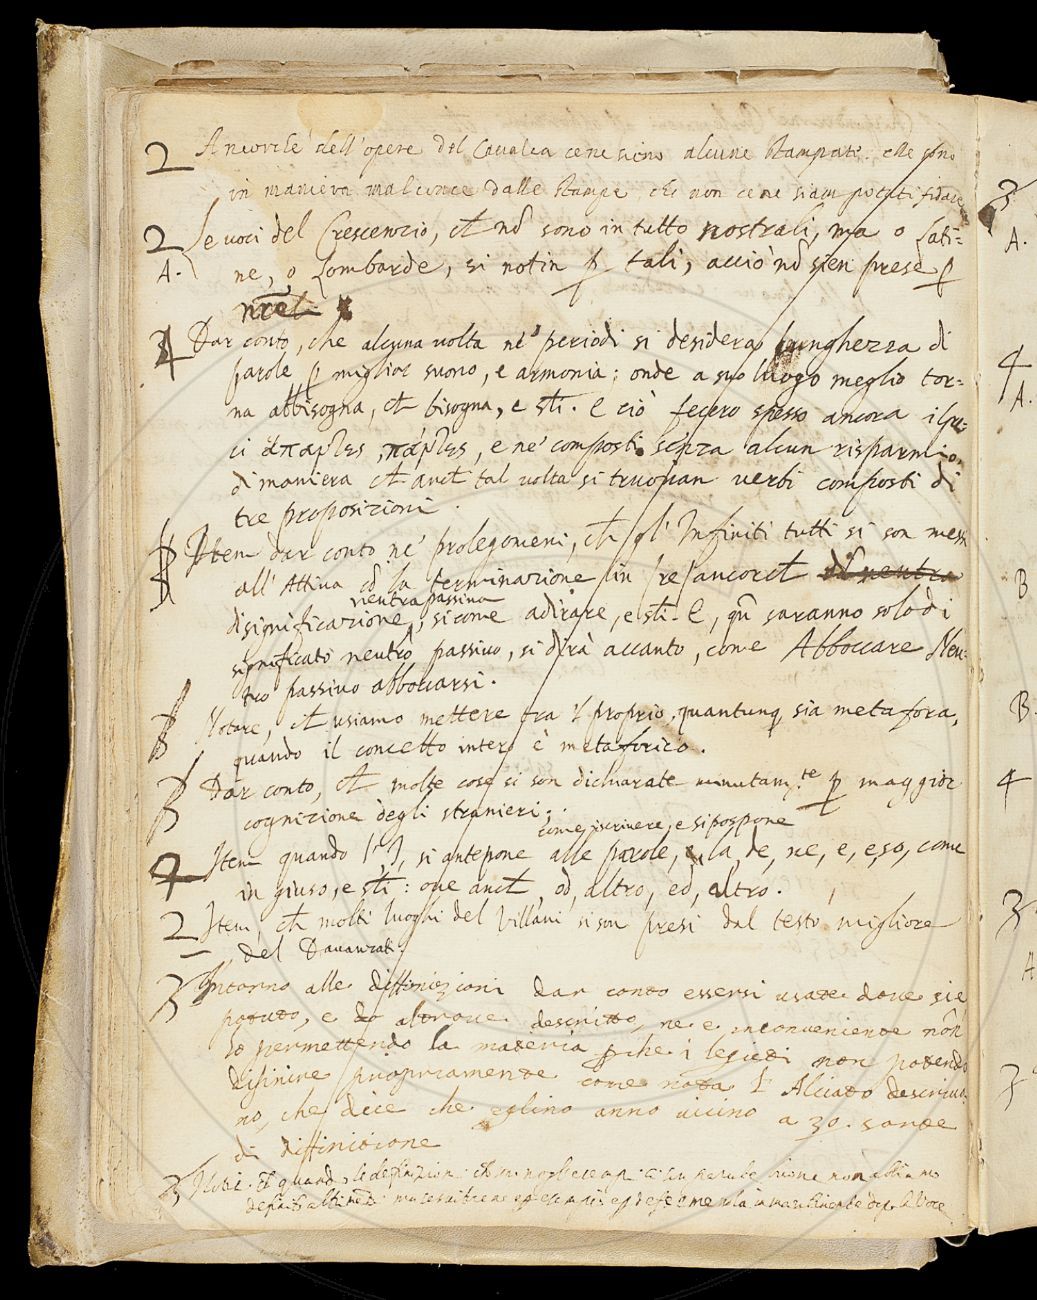 2 Ancorche dell'opere del Cavalca cene sieno alcune stampate, elle sono
in maniera malconce dalle stampe, che non ce ne siam potuti fidare
2 Le voci del Crescenzio, ch nō sono in tutto nostrali, ma o Lati=
A. ne, o Lombarde, si notin p tali, acciò nō sien prese p
4 Dar conto, che alcuna volta ne' periodi si desidera lunghezza di
parole p miglior suono, e armonia; onde a suo luogo meglio tor=
na abbisogna, ch bisogna, e sti. E ciò fecero spesso ancora i Gre=
ci, e ne' composti senza alcun risparmio.
di maniera ch anch tal volta si truovan verbi composti di
tre proposizioni.
B Item dar conto ne' prolegomeni, ch gl' Infiniti tutti si son messi
all' Attiva cō la terminazione in re, ancorch di neutra
neutra passiva
di significazione, sicome adirare, e sti. E, qn̄ saranno solo di
significato neutro passivo, si dirà accanto, come Abboccare Neu=
tro passivo abboccarsi.
B Notare, ch usiamo mettere fra 'l proprio, quantunq sia metafora,
quando il concetto intero è metaforico.
B Dar conto, ch molte cose si son dichiarate minutam.te p maggior
cognizione degli stranieri.
come, iscrivere, e si pospone
4 Item quando l' I, si antepone alle parole, la, de, ne, e, eso, come
in giuso, e sti: ove anch, od, altro, ed, altro.
2 Item, ch molti luoghi del Villani si son presi dal testo migliore
del Davanzati.
3 Intorno alle diffinizioni dar conto essersi usate dove s'è
potuto, e do altrove descritto, ne e inconveniente nōn
lo permettendo la materia pche i legisti non potendo
difinire propriamente come nota l' Alciato descrivo
no, che dice che eglino anno vicino a 30. sorte
di diffinizione
3 quando le definizioni
3
A.
4
A.
B
B.
4
3
A
3